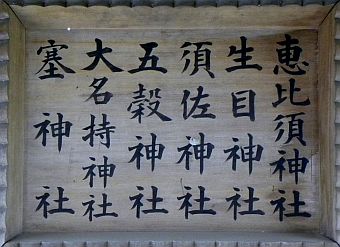 恵比須神社
生目神社
須佐神社
五穀神社
大名持神社
塞神社